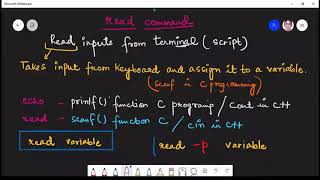 Microsoft Whiteboard
read command
Read inputs from terminal (script)
Takes input from keyboard and assign it to a variable.
(scanf in C programming)
echo - printf() function C programs / cout in C++
read - scanf() function C / cin in C++
read variable
read -p variable